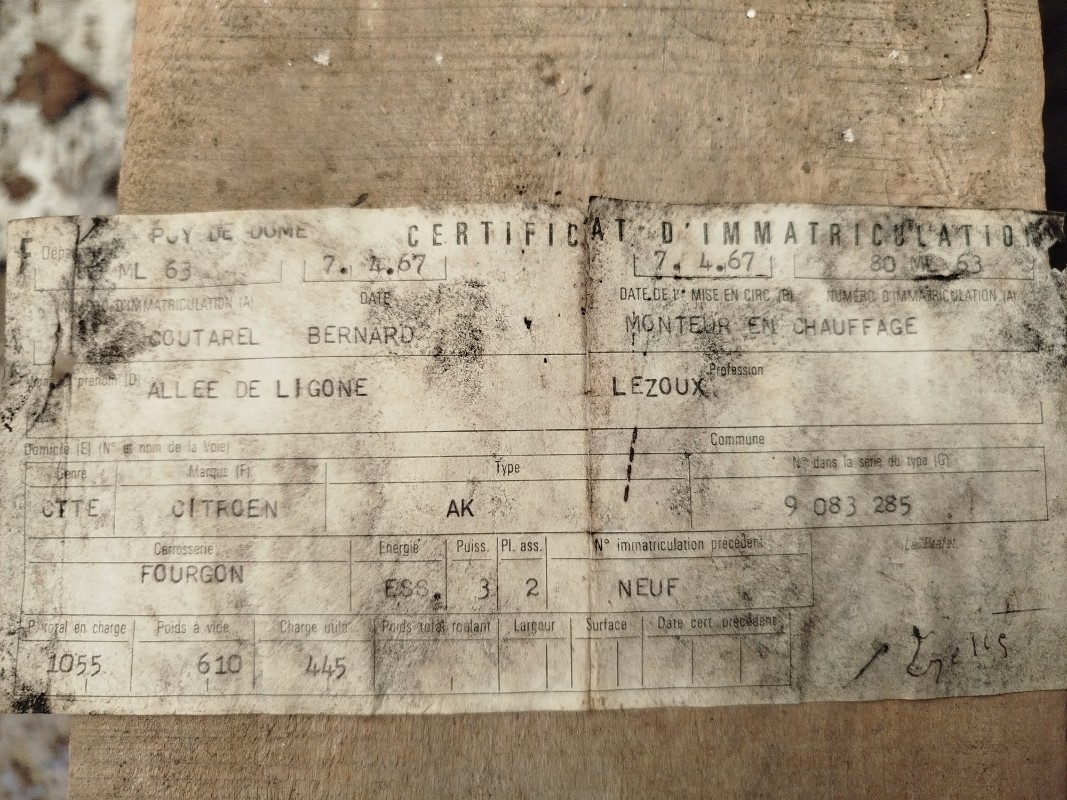 F PUY DE DOME CERTIFICAT D'IMMATRICULATION
ML 63 7. 4.67 7. 4.67 80 ML 63
D'IMMATRICULATION (A) DATE DATE DE 1re MISE EN CIRC (B) NUMÉRO D'IMMATRICULATION (A)
COUTAREL BERNARD MONTEUR EN CHAUFFAGE
prénom (D) Profession
ALLEE DE LIGONE LEZOUX
Domicile (E) (N° et nom de la Voie) Commune
Genre Marque (F) Type N° dans la série du type (G)
CTTE CITROEN AK 9 083 285
Carrosserie Energie Puiss. Pl. ass. N° immatriculation précédent Le Préfet,
FOURGON ESS. 3 2 NEUF
P. total en charge Poids à vide Charge utile Poids total roulant Largeur Surface Date cert. précédent
1055 610 445